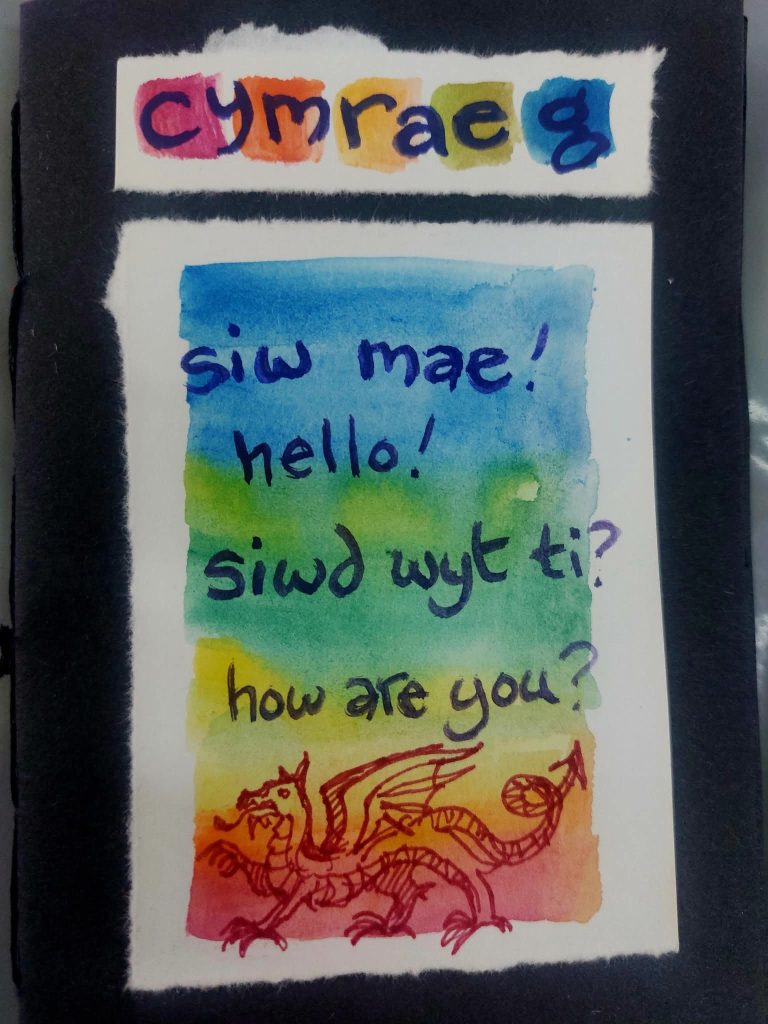 cymraeg
siw mae!
hello!
siwd wyt ti?
how are you?